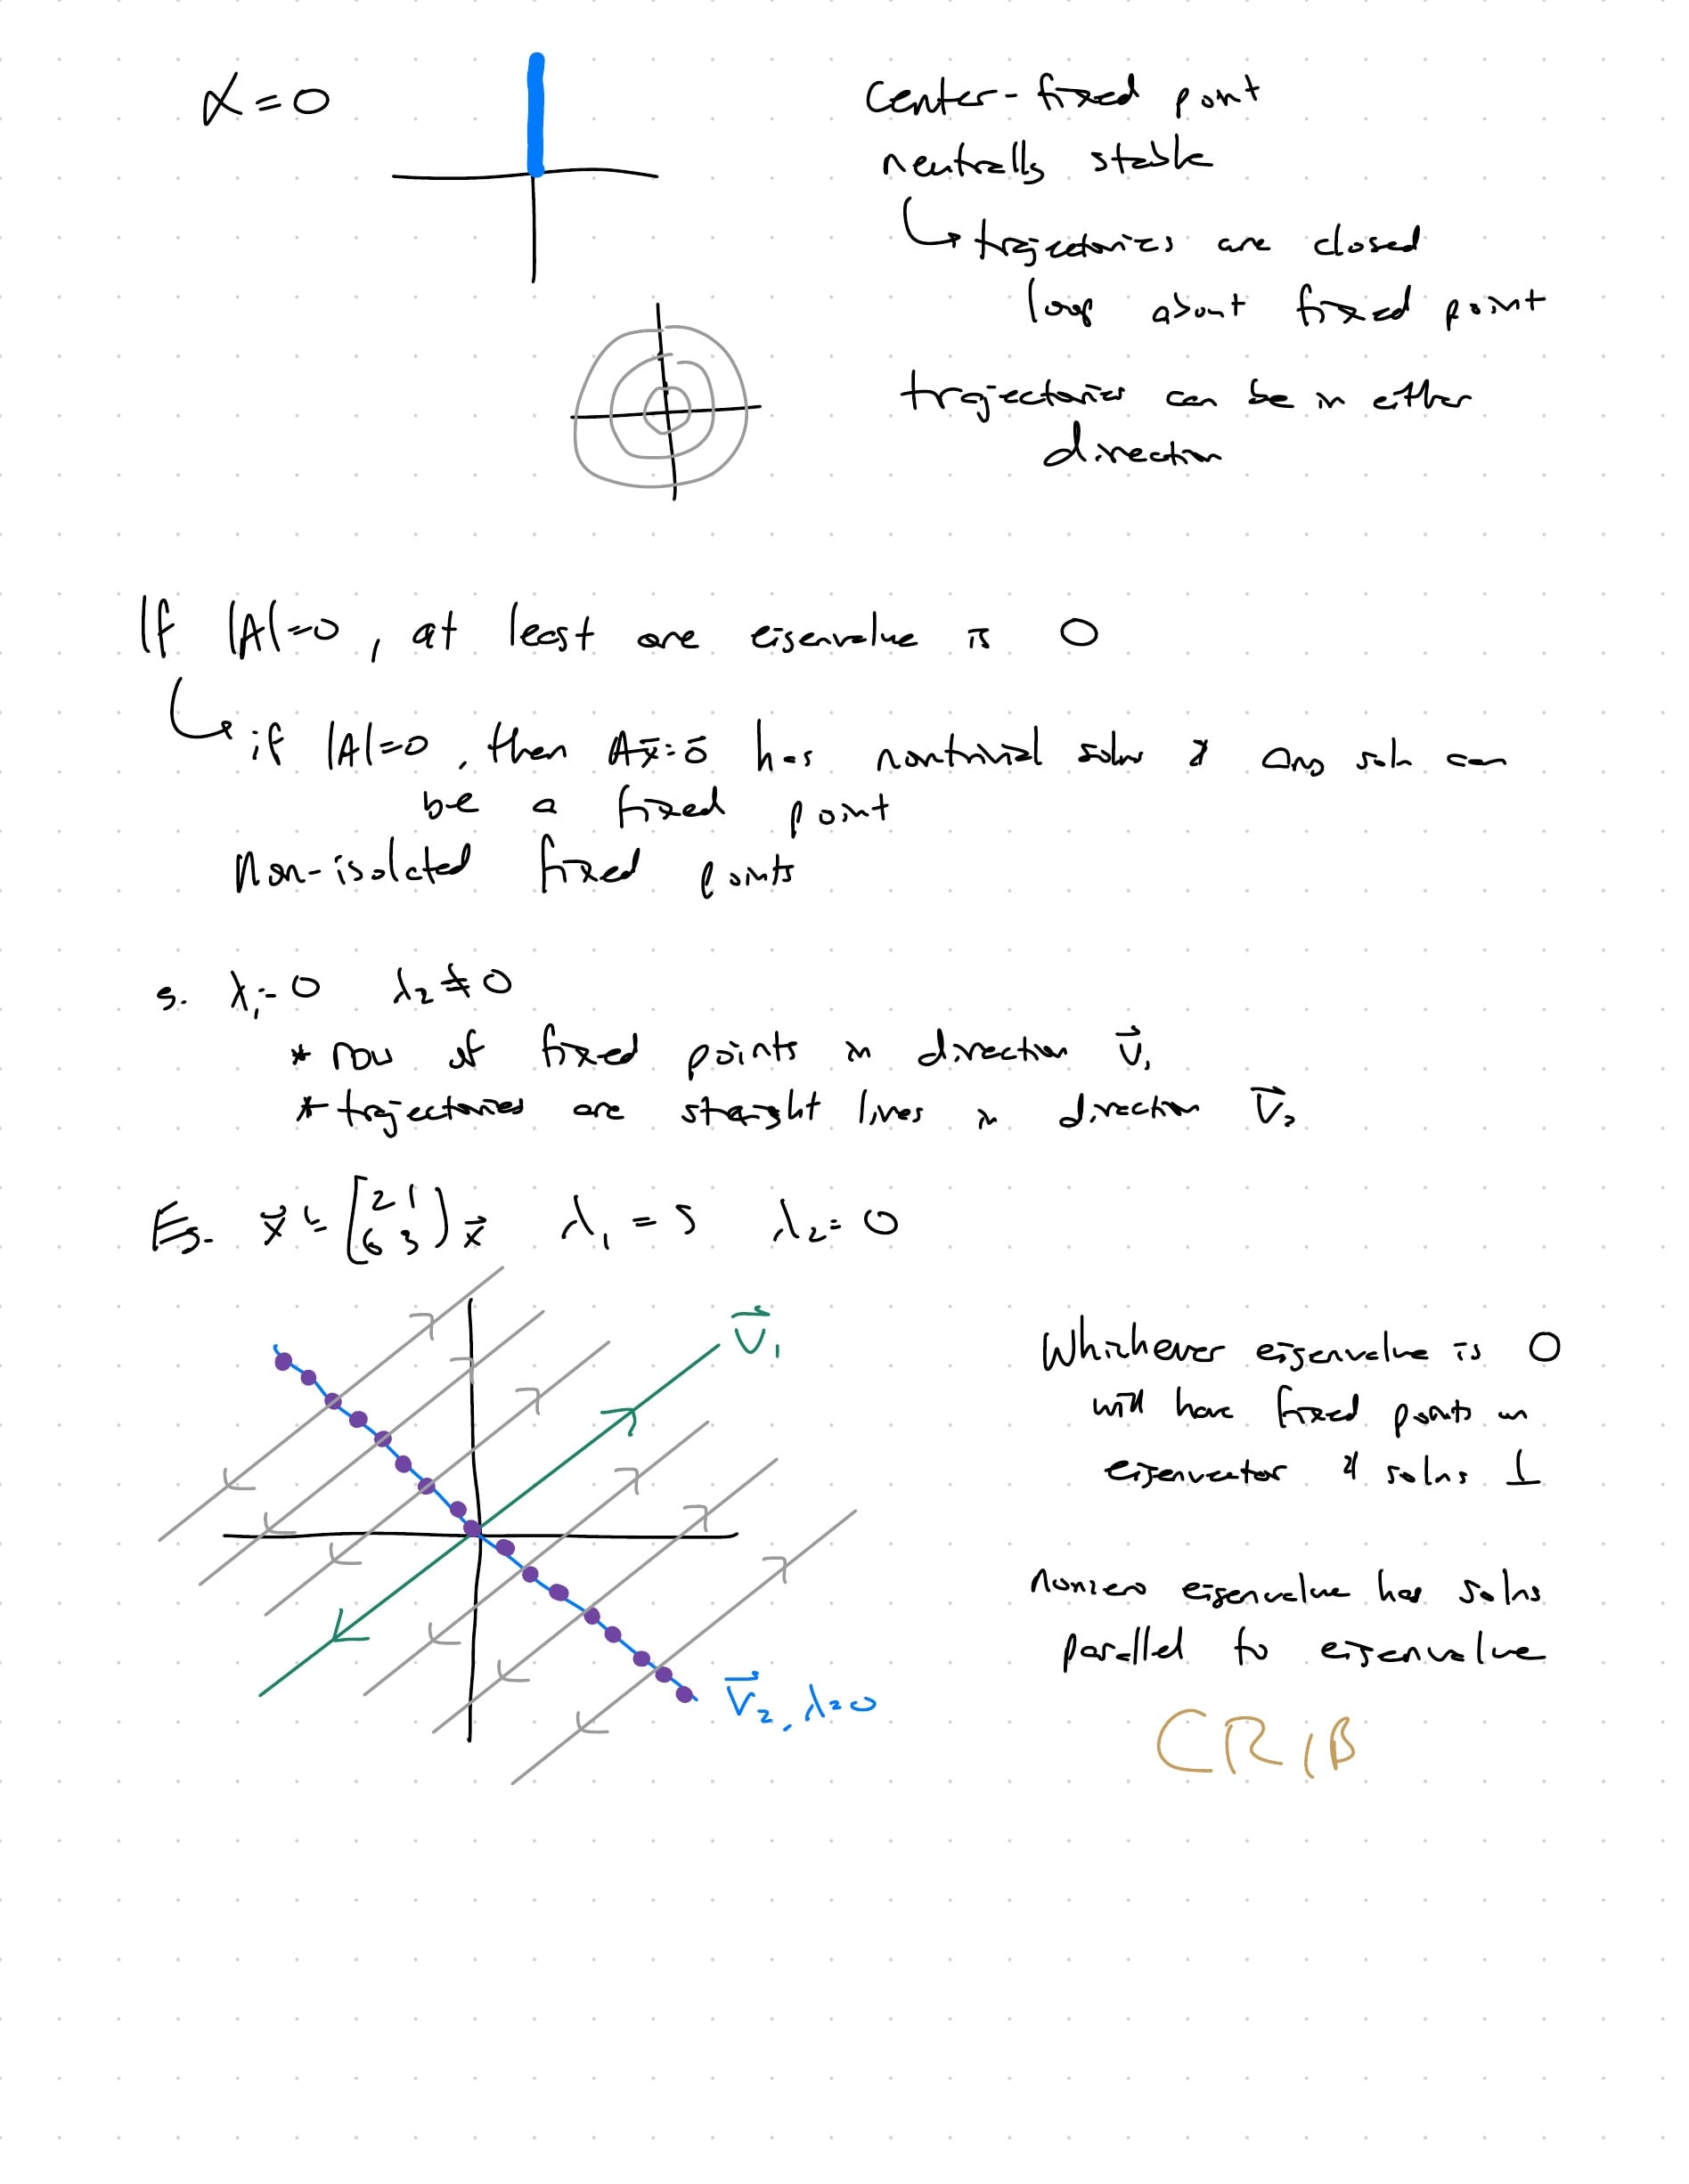 α=0
Center-fixed point
neutrally stable
↳ trajectories are closed
loop about fixed point
trajectories can be in either
direction
If |A|=0, at least one eigenvalue is 0
↳ if |A|=0, then Ax̄=0̄ has nontrivial solns & any soln can
be a fixed point
Non-isolated fixed points
5. λ₁=0 λ₂≠0
* row of fixed points in direction v⃗₁
* trajectories are straight lines in direction v⃗₂
Eg. x⃗' = [2 1
6 3] x⃗ λ₁ = 5 λ₂ = 0
v⃗₁
Whichever eigenvalue is 0
will have fixed points on
eigenvector & solns ⊥
nonzero eigenvalue has solns
parallel to eigenvalue
v⃗₂, λ=0
CRIB